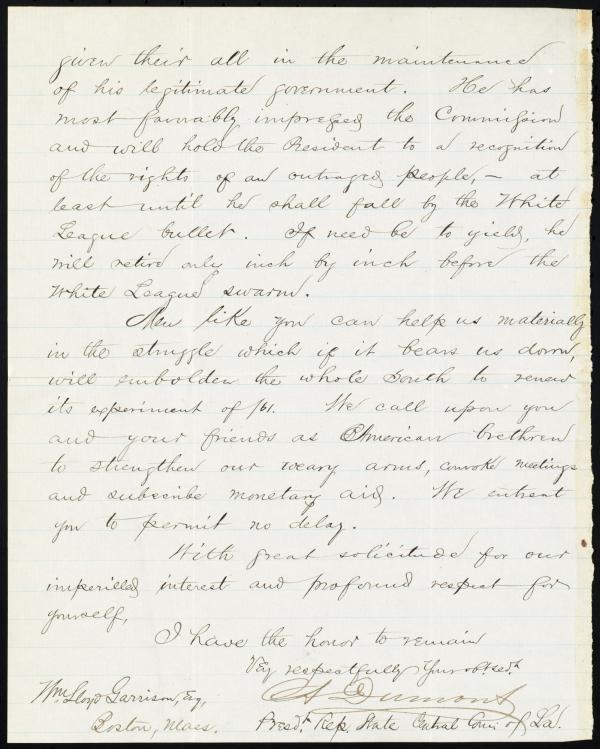 given their all in the maintenance
of his legitimate government. He has
most favorably impressed the Commission
and will hold the President to a recognition
of the rights of an outraged people, – at
least until he shall fall by the White
League bullet. If need be to yield, he
will retire only inch by inch before the
White League swarm.
Men like you can help us materially
in the struggle which if it bears us down,
will embolden the whole South to renew
its experiment of /61. We call upon you
and your friends as American brethren
to strengthen our weary arms, convoke meetings
and subscribe monetary aid. We entreat
you to permit no delay.
With great solicitude for our
imperilled interest and profound respect for
yourself,
I have the honor to remain
Very respectfully Your obt. sedt.
A Dumont
Wm Lloyd Garrison, Esq,
Boston, Mass.
Presdt. Rep. State Central Com of La.